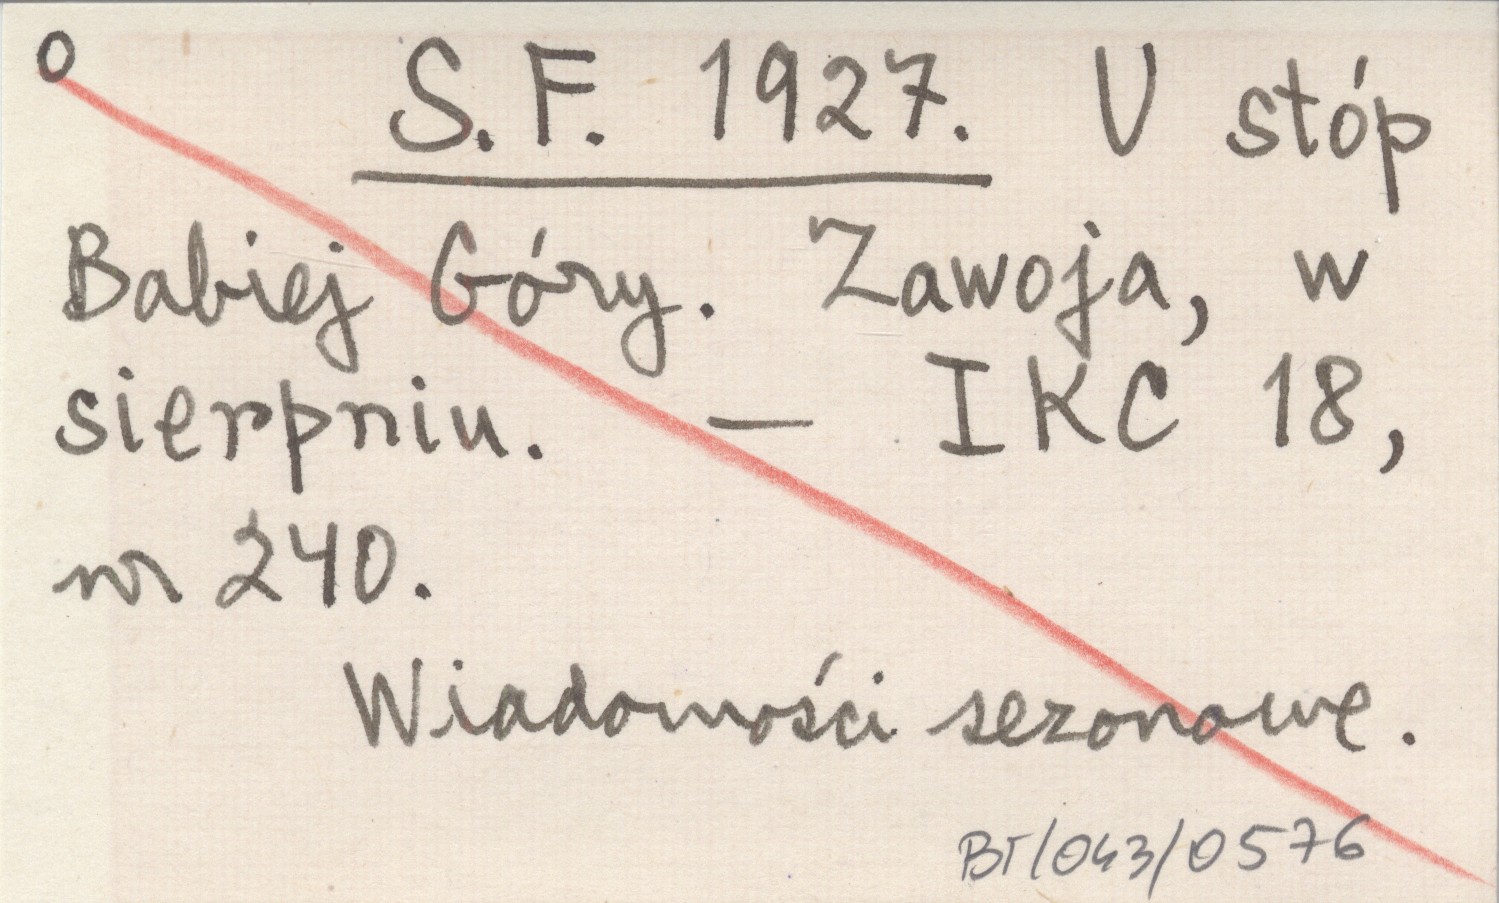 o S.F. 1927. U stóp
Babiej Góry. Zawoja, w
sierpniu. — IKC 18,
nr 240.
Wiadomości sezonowe.
BT/043/0576